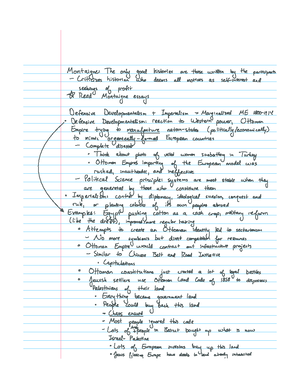 Montaigne: The only good histories are those written by the participants
- Criticizes historian who deems all motives as self-interest and
seekings of profit
Read Montaigne essays
Defensive Developmentalism + Imperialism → Marginalized ME 1800-1914
- Defensive Developmentalism: reaction to Western power, Ottoman
Empire trying to manufacture nation-states (politically/economically)
to mimic organically-formed European countries
- Complete disaster
• Think about photo of veiled women sunbathing in Turkey
• Ottoman Empire importing of the European model was
rushed, inauthentic, and ineffective
- Political Science principle: systems are most stable when they
are generated by those who constitute them
• Imperialism: control by diplomacy, ideological suasion, conquest and
rule, or planting colonies of its own peoples abroad
Examples: Egypt picking cotton as a cash crop, military reform
(like the British), improved/more regular taxing
• Attempts to create an Ottoman identity led to sectarianism
- No more symbiosis but direct competition for resources
• Ottoman Empire would contract out infrastructure projects
- Similar to China's Belt and Road Initiative
• Capitulations
• Ottoman constitutions just created a lot of legal besides
• Jewish settlers use Ottoman Land Code of 1858 to dispossess
Palestinians of their land
• Everything became government land
• People could buy back this land
- Cheap enough
- Most people ignored this code
- Lots of people in Beirut bought up what is now
Israel-Palestine
• Lots of European investors buy up this land
• Jews fleeing Europe have deeds to land already measured